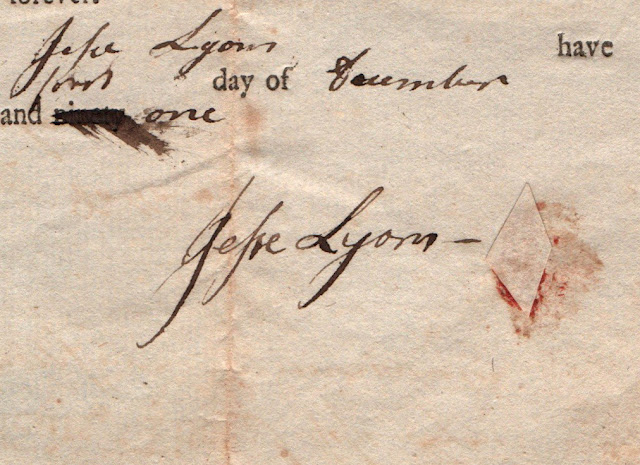 forever.
Jesse Lyons have
first day of December
and ninety one
Jesse Lyons –